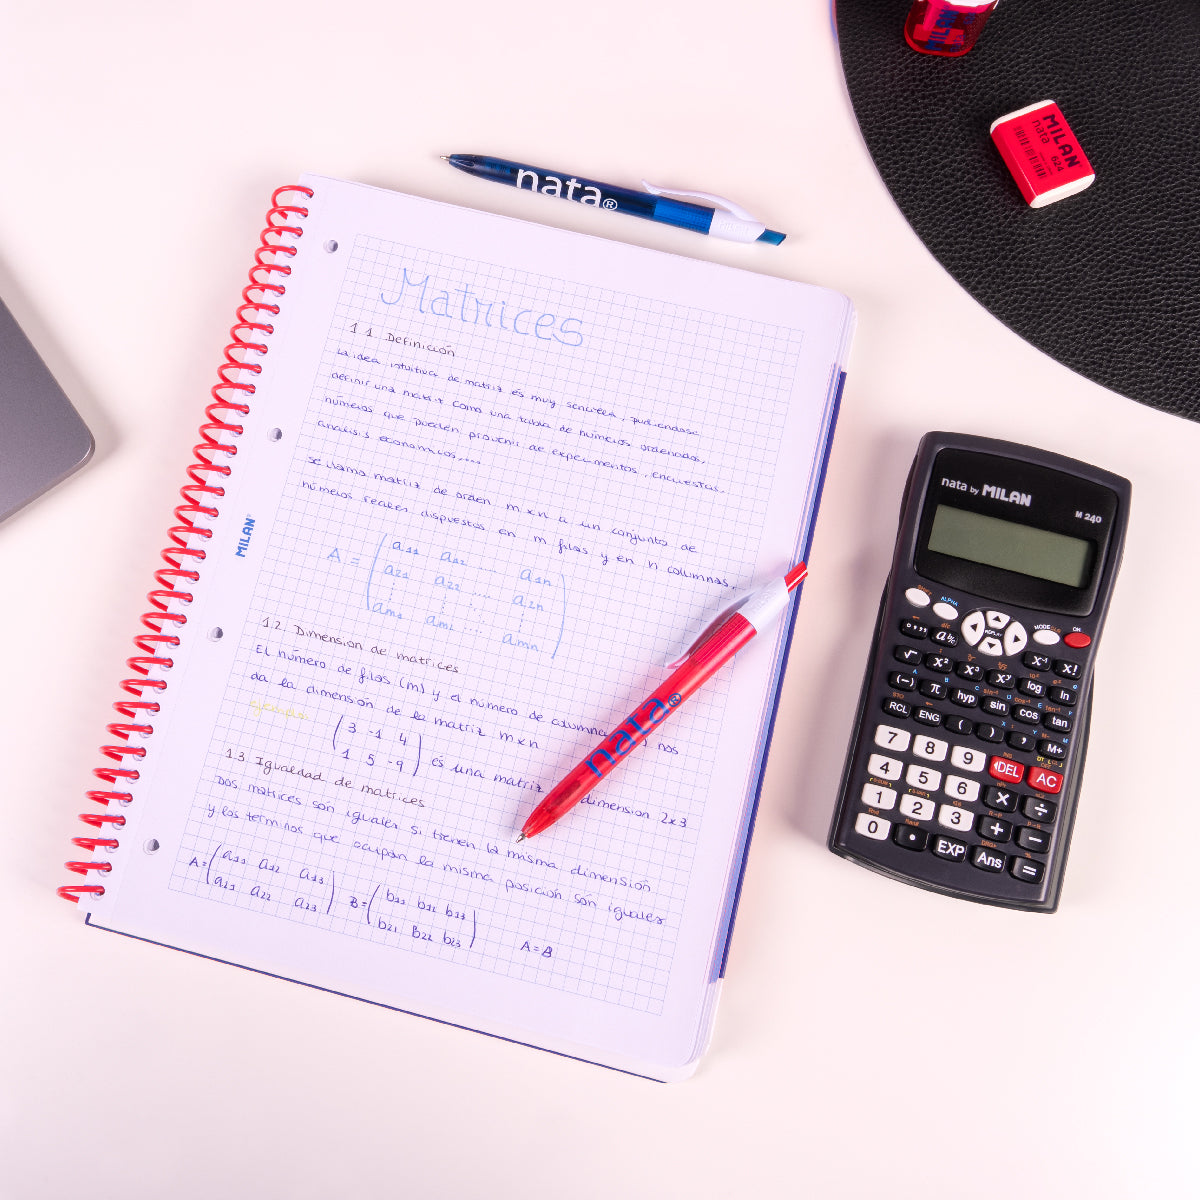 MILAN
MILAN
nata
624
nata®
Matrices
1.1. Definición
La idea intuitiva de matriz es muy sencilla, pudiendose
definir una matriz como una tabla de números ordenados,
números que pueden provenir de experimentos, encuestas,
analisis economicos....
se llama matriz de orden m x n a un conjunto de
números reales dispuestos en m filas y en n columnas.
A = ( a11 a12 .... a1n
a21 a22 .... a2n
am1 am2 .... amn )
MILAN
1.2. Dimension de matrices
El número de filas (m) y el número de columna ) nos
da la dimensión de la matriz m x n
Ejemplo:
( 3 -1 4
1 5 -9 ) es una matriz dimension 2x3
1.3. Igualdad de matrices
Dos matrices son iguales si tienen la misma dimensión
y los terminos que ocupan la misma posición son iguales
A = ( a11 a12 a13 B = ( b11 b12 b13
a21 a22 a23 ) b21 b22 b23 ) A = B
nata®
nata by MILAN
M 240
SHIFT ALPHA
REPLAY
MODE CLR ON
d/c
° ' " a b/c x⁻¹ x!
√ x² x³ log ln
(-) π hyp sin cos tan
STO
RCL ENG ( ) , M+
7 8 9 DEL AC
4 5 6 × ÷
1 2 3 + −
0 . EXP Ans =